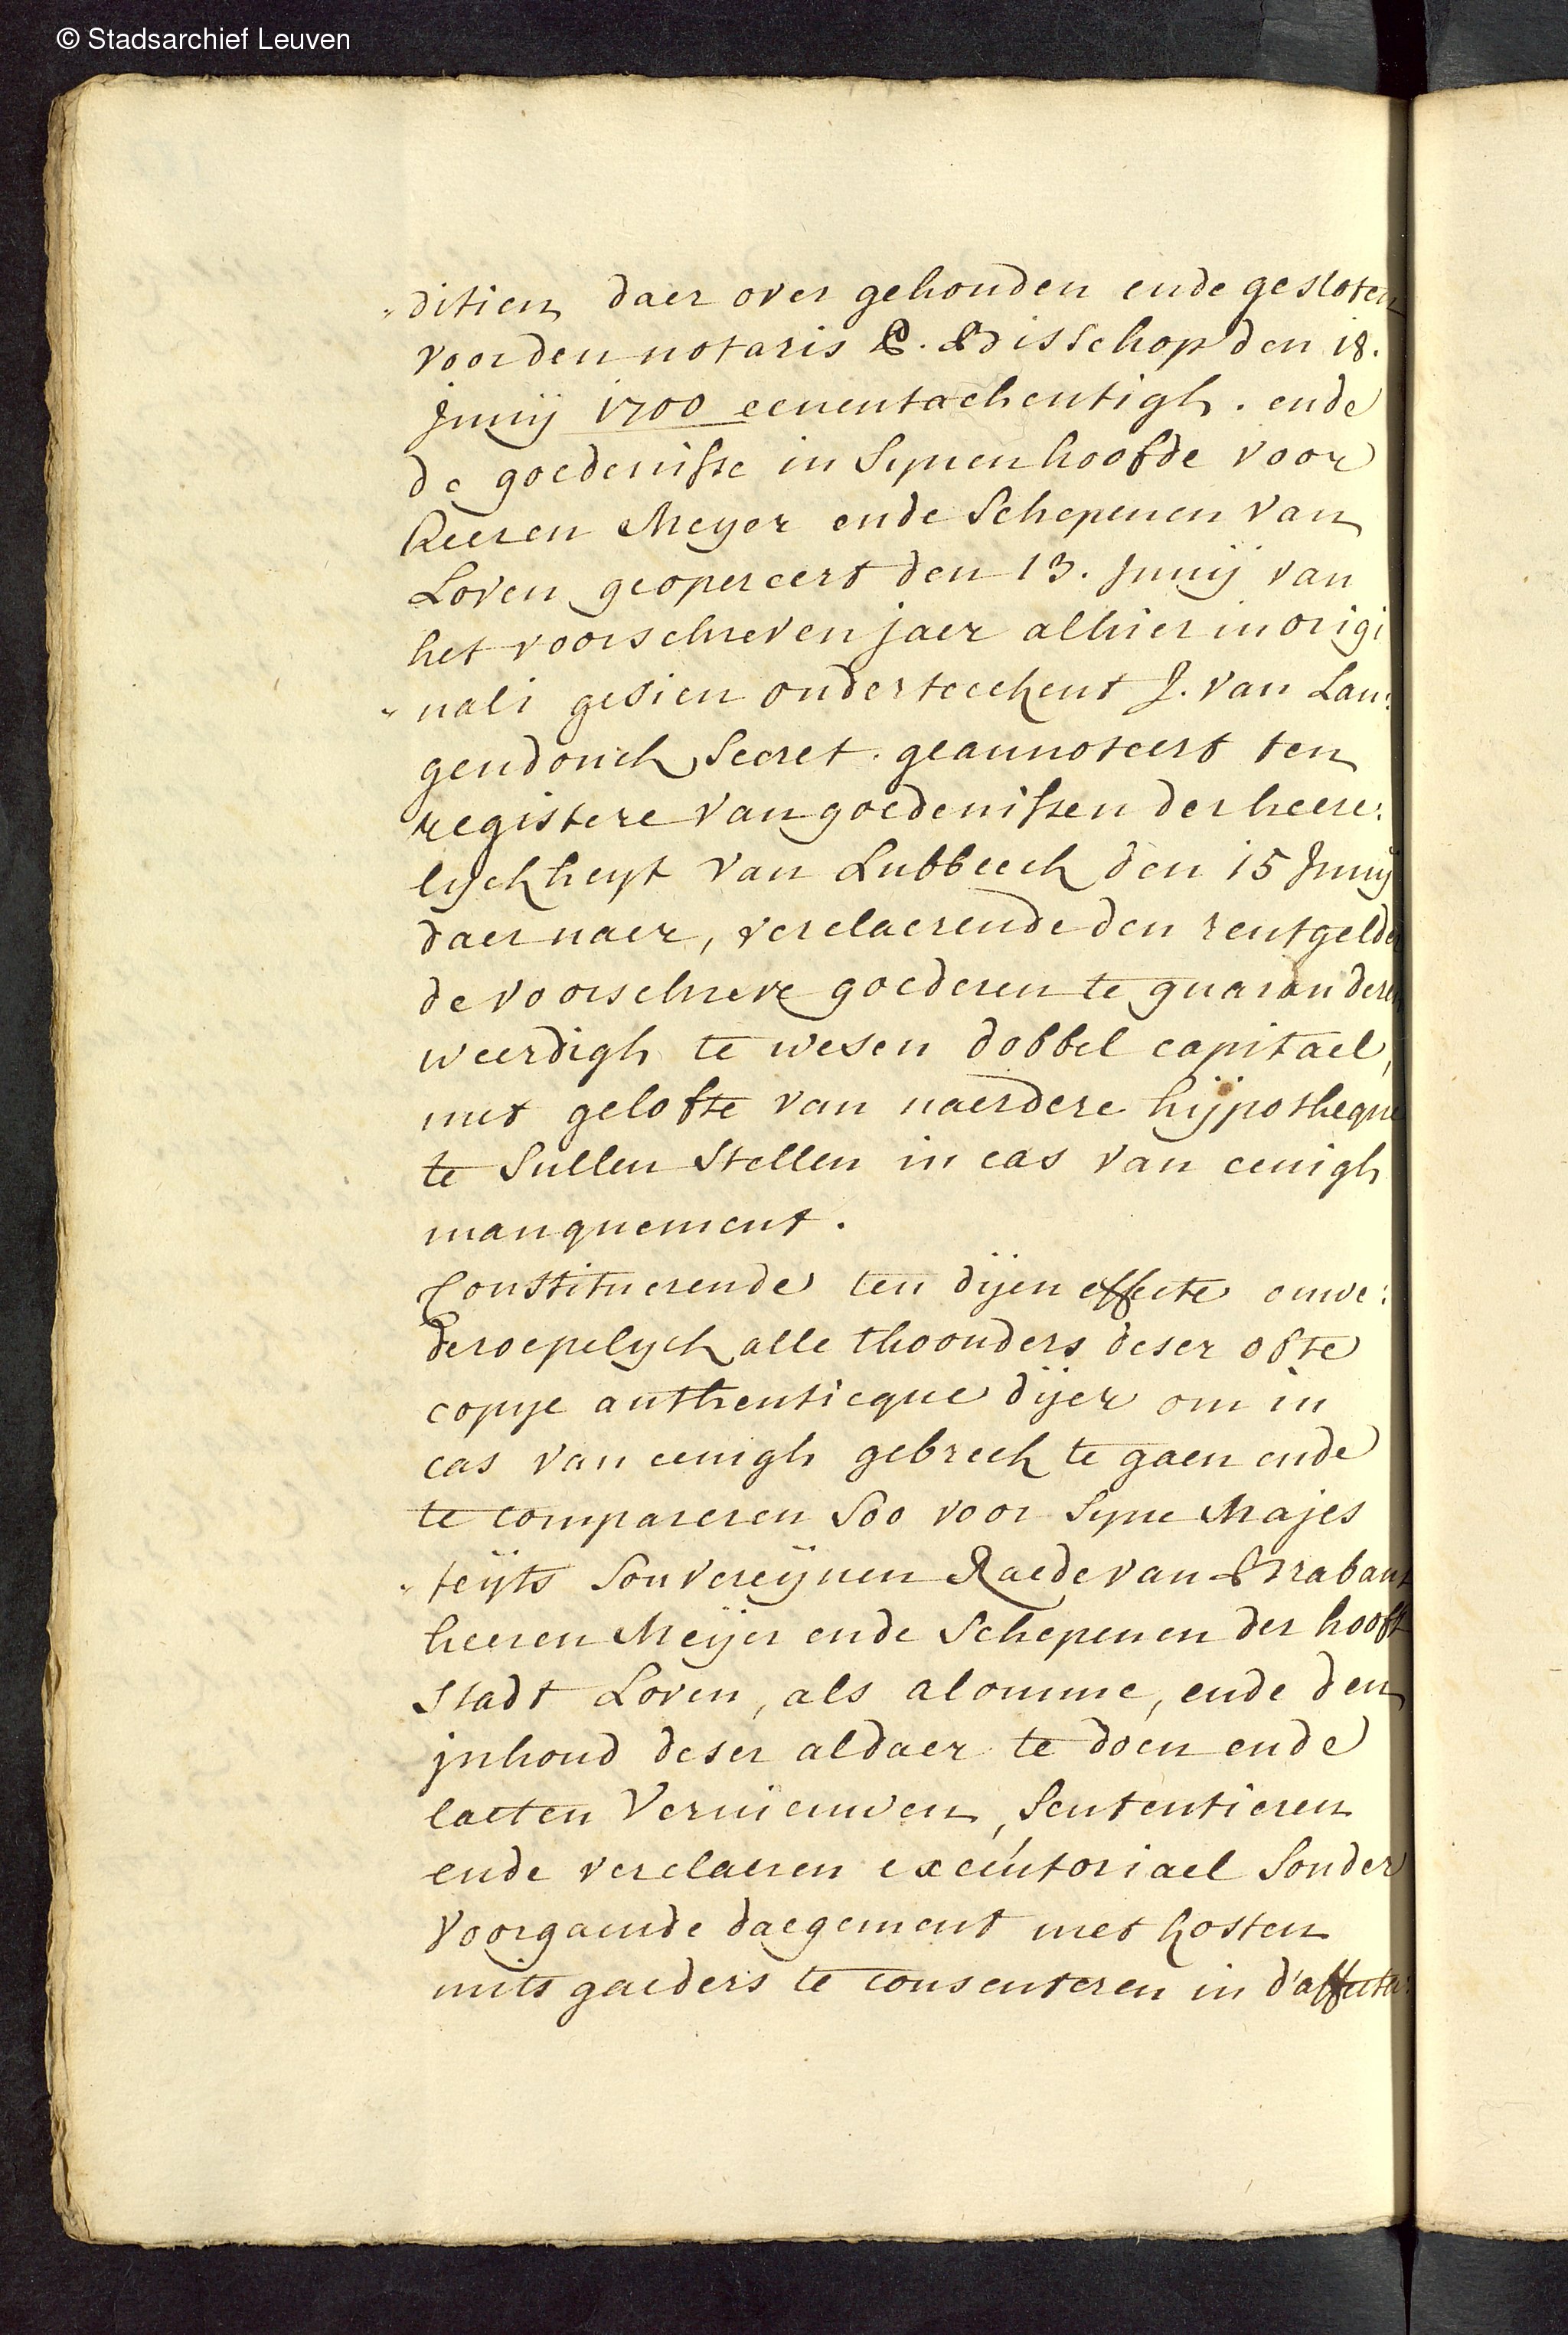 © Stadsarchief Leuven
„ditien daer over gehouden ende gesloten
voor den notaris Bisschop den 18.
Junij 1700 eenentachentigh. ende
de goedenisse in Synen hoofde voor
heeren Meyer ende Schepenen van
Loven geopereert den 13. Junij van
het voorschreven jaer alhier in origi
„nali gesien onderteeckent J. van Lan:
gendonck Secret. geannoteert ten
registere van goedenissen der heere:
lyckheyt van Lubbeeck den 15 Junij
daer naer, verclaerende den rentgelder
de voorschreve goederen te guaranderen
weerdigh te wesen dobbel capitael,
met gelofte van naerdere hijpotheque
te Sullen Stellen in cas van eenigh
manquement.
Constituerende ten dijen effecte onwe:
deroepelyck alle thoonders deser ofte
copye authenticque dijer om in
cas van eenigh gebreck te gaen ende
te compareren Soo voor Syne Majes
„teijts Souvereijnen Raede van Brabant
heeren Meijer ende Schepenen der hooft
Stadt Loven, als alomme, ende den
jnhoud deser aldaer te doen ende
laeten Vernieuwen, Sententieren
ende verclaeren executoriael Sonder
voorgaende daegement met kosten
mitsgaeders te consenteren in d'affecta: